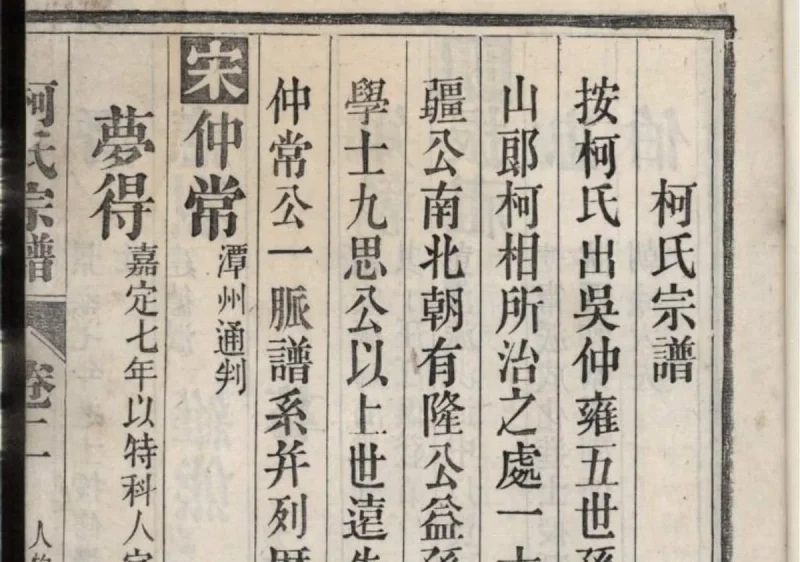 柯氏宗譜
按柯氏出吳仲雍五世孫
山郎柯相所治之處一
疆公南北朝有隆公益
學士九思公以上世遠
仲常公一脈譜系并列
宋仲常潭州通判
夢得嘉定七年以特科人
柯氏宗譜
卷二
人